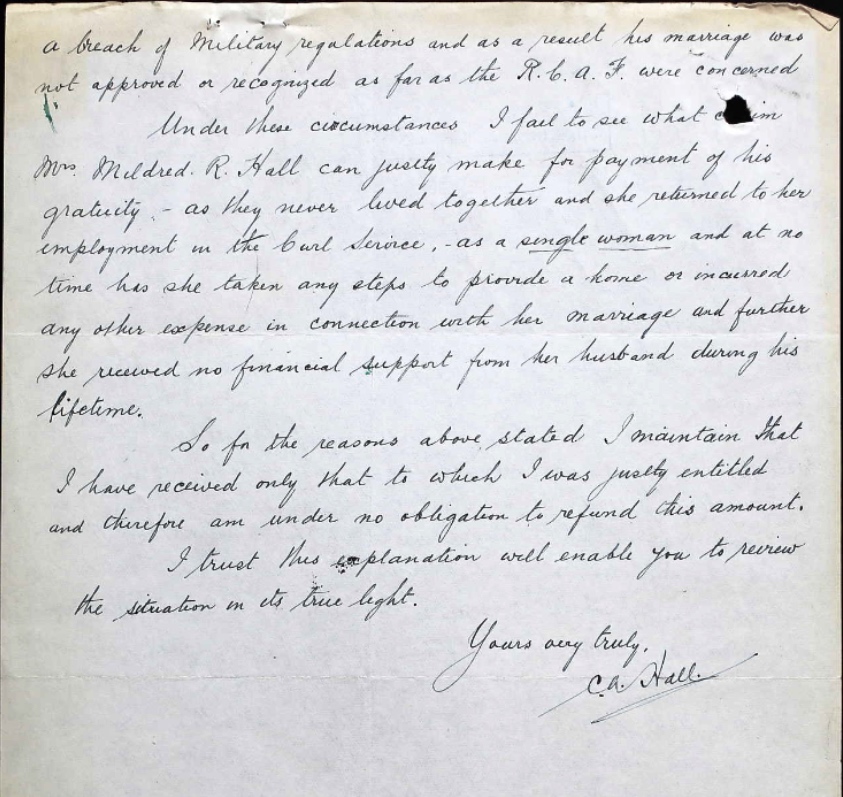 a breach of Military regulations and as a result his marriage was
not approved or recognized as far as the R.C.A.F. were concerned
Under these circumstances I fail to see what
Mrs. Mildred. R. Hall can justly make for payment of his
gratuity, - as they never lived together and she returned to her
employment in the Civil Service, - as a single woman and at no
time has she taken any steps to provide a home or incurred
any other expense in connection with her marriage and further
she received no financial support from her husband during his
lifetime.
So for the reasons above stated I maintain that
I have received only that to which I was justly entitled
and therefore am under no obligation to refund this amount.
I trust this explanation will enable you to review
the situation in its true light.
Yours very truly,
C.A. Hall.